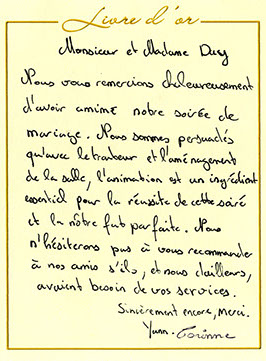 Livre d'or
Monsieur et Madame Desy
Nous vous remercions chaleureusement
d'avoir animé notre soirée de
mariage. Nous sommes persuadés
qu'avec le traiteur et l'aménagement
de la salle, l'animation est un ingrédient
essentiel pour la réussite de cette soirée
et la nôtre fut parfaite. Nous
n'hésiterons pas à vous recommander
à nos amis s'ils, et nous d'ailleurs,
avaient besoin de vos services.
Sincèrement encore, Merci.
Yann - Corinne